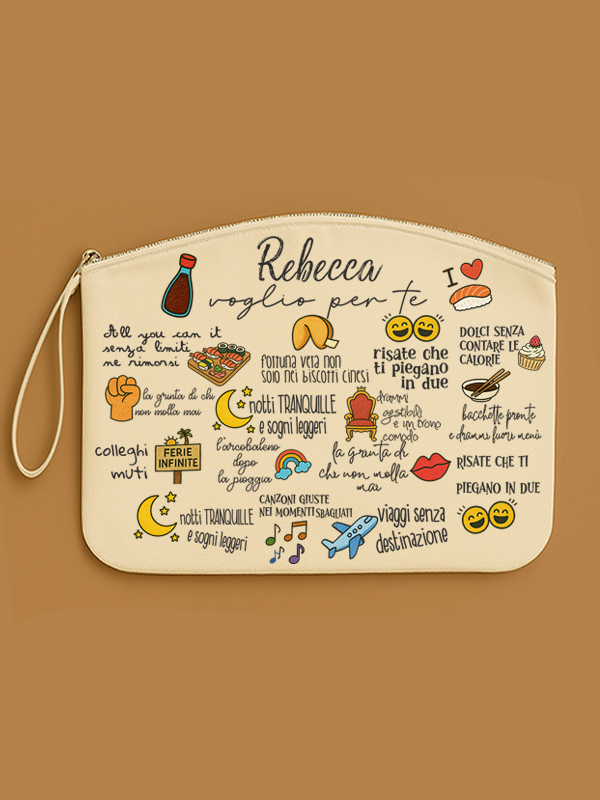 Rebecca
voglio per te
I
All you can it
senza limiti
ne rimorsi
fortuna vera non
solo nei biscotti cinesi
risate che
ti piegano
in due
DOLCI SENZA
CONTARE LE
CALORIE
la grinta di chi
non molla mai
notti TRANQUILLE
e sogni leggeri
drammi
gestibili
e un trono
comodo
bacchette pronte
e drammi fuori menù
colleghi
muti
FERIE
INFINITE
l'arcobaleno
dopo
la pioggia
la grinta di
chi non molla
mai
RISATE CHE TI
PIEGANO IN DUE
notti TRANQUILLE
e sogni leggeri
CANZONI GIUSTE
NEI MOMENTI SBAGLIATI
viaggi senza
destinazione